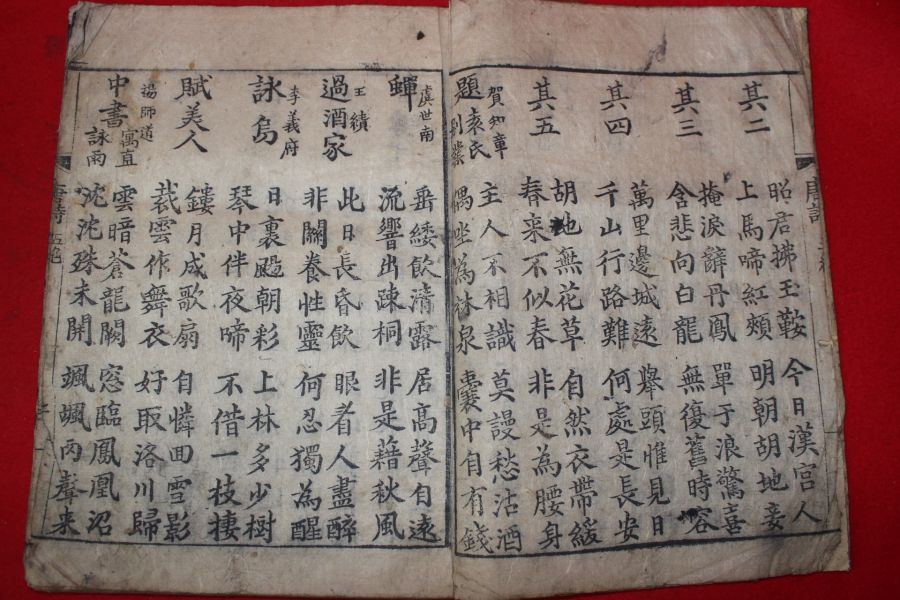 其二
昭君拂玉鞍 今日漢宮人
上馬啼紅頰 明朝胡地妾
其三
掩淚辭丹鳳 單于浪驚喜
含悲向白龍 無復舊時容
其四
萬里邊城遠 擧頭惟見日
千山行路難 何處是長安
其五
胡地無花草 自然衣帶緩
春来不似春 非是為腰身
題袁氏別業
賀知章
主人不相識 莫謾愁沽酒
偶坐為林泉 囊中自有錢
蟬
虞世南
垂緌飲清露 居高聲自遠
流響出踈桐 非是藉秋風
過酒家
王績
此日長昏飲 眼看人盡醉
非關養性靈 何忍獨為醒
詠烏
李義府
日裏颺朝彩 上林多少樹
琴中伴夜啼 不借一枝棲
賦美人
鏤月成歌扇 自憐回雪影
裁雲作舞衣 好取洛川歸
中書寓直詠雨
楊師道
雲暗蒼龍闕 窓臨鳳凰沼
沈沈殊未開 颯颯雨聲来
唐詩 五絶